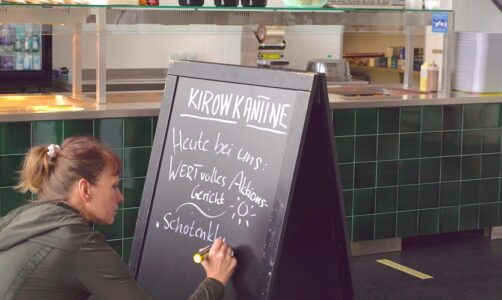 KIROW KANTINE
Heute bei uns:
WERTvolles Aktions-
Gericht